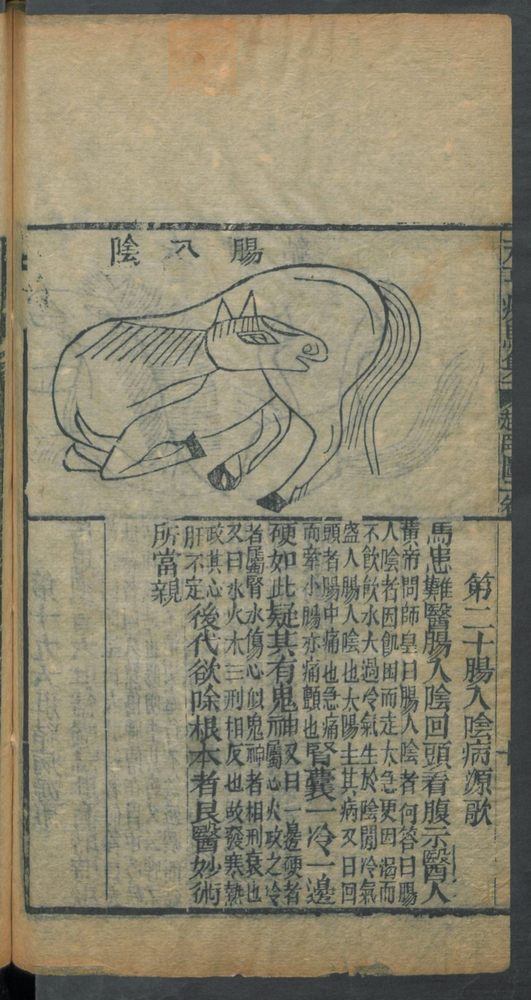 腸入陰
第二十腸入陰病源歌
馬患難醫腸入陰回頭看腹示醫人
黃帝問師皇曰腸入陰者何答曰腸
入陰者因飢困而走太急更因渴而
不飲飲水大過冷氣生於陰間冷氣
盛人腸入陰也太陽主其病又曰回
頭者腸中痛也急痛
而牽小腸亦痛顫也
腎囊一冷一邊
硬如此疑其有鬼神
又曰一邊硬者
而屬心火政之冷
者屬腎水傷心似鬼神者相刑衰也
又曰水火木三刑相反也故發寒熱
政其心
肝不定
後代欲除根本者良醫妙術
所當親